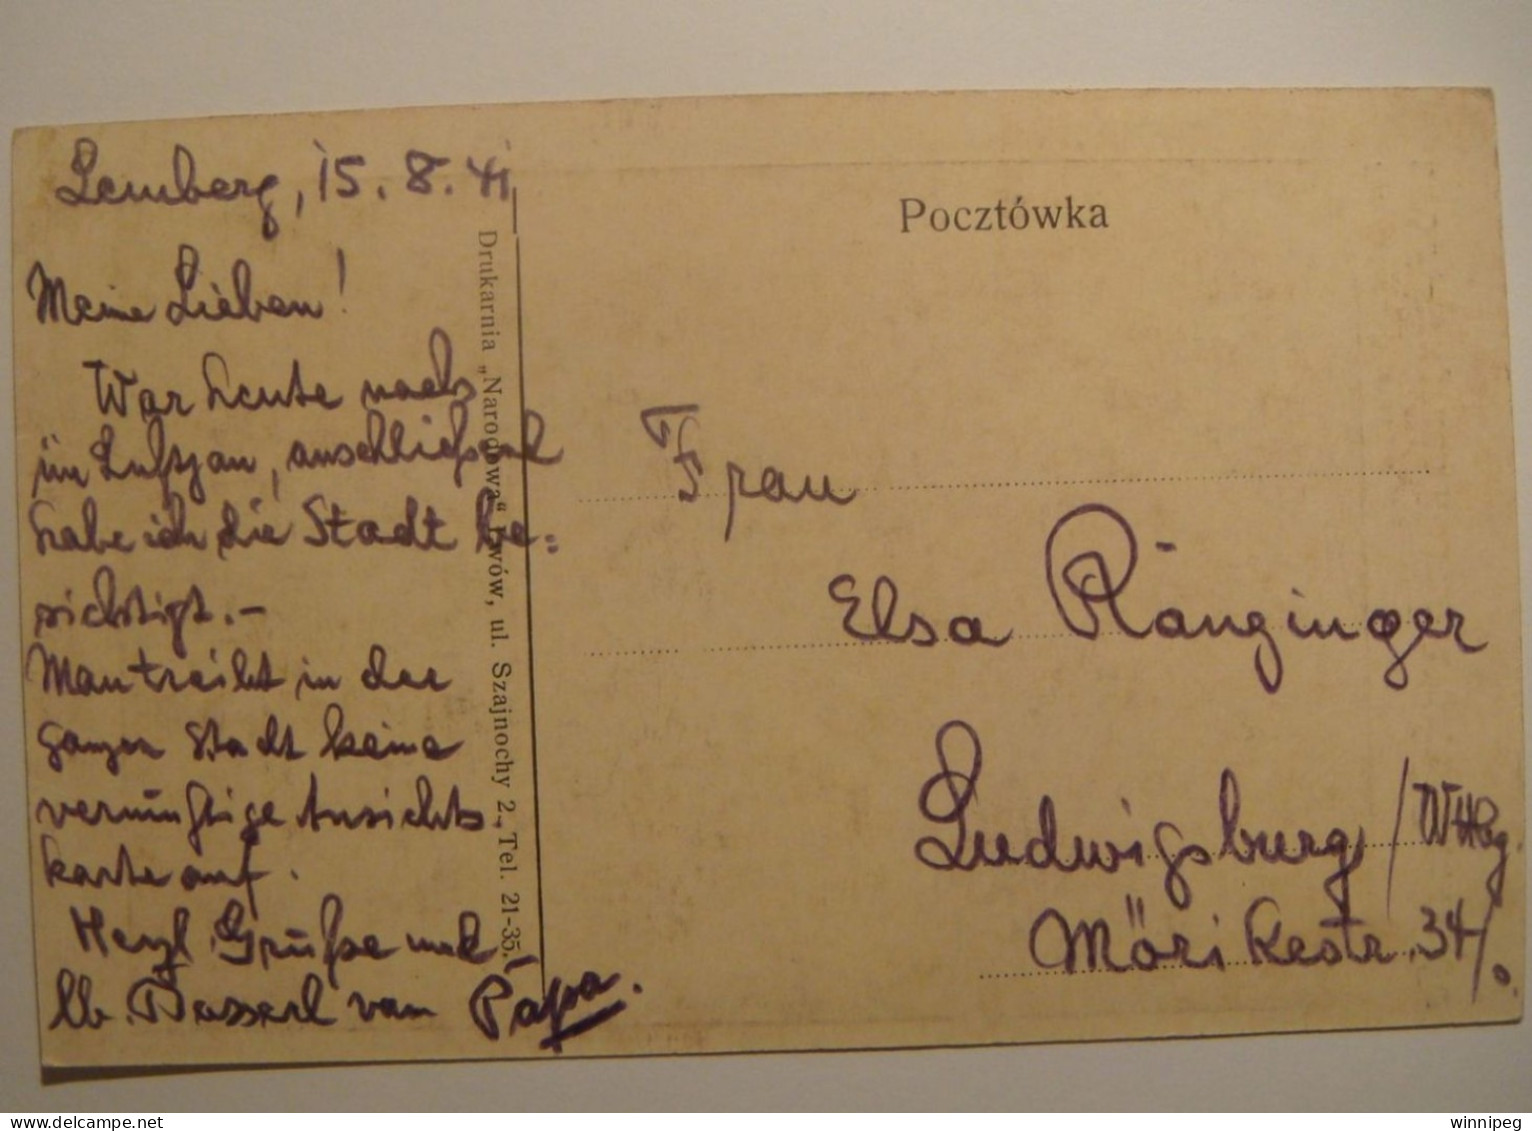 Lemberg, 15.8.41
Meine Lieben!
War heute noch
im Luftgau, anschließend
habe ich die Stadt be=
sichtigt.-
Man treibt in der
ganzen Stadt keine
vernünftige Ansichts
karte auf.
Herzl. Grüße und
lb. Busserl von Papa.
Drukarnia „Narodowa“ Lwów, ul. Szajnochy 2., Tel. 21-35.
Pocztówka
Frau
Elsa Ränginger
Ludwigsburg / Wttbg.
Mörikestr. 34/0.
winnipeg